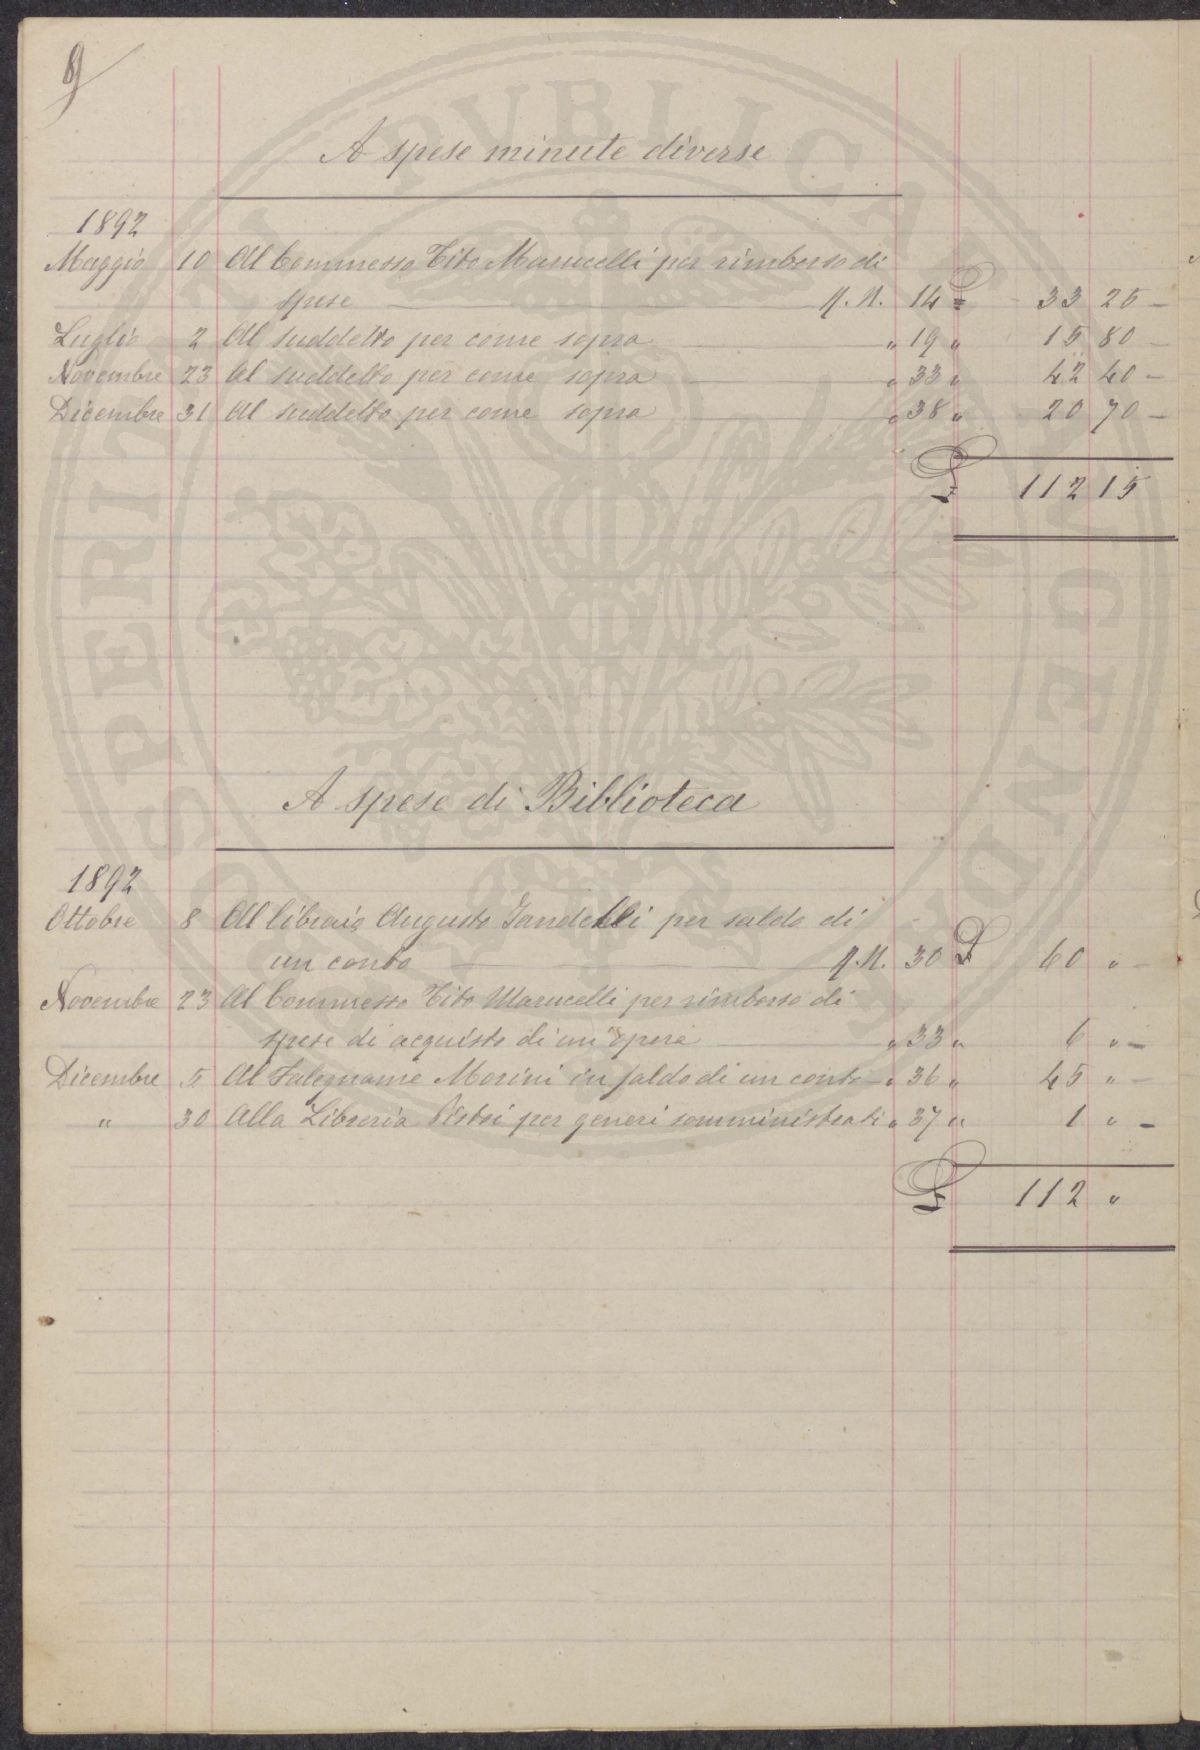 9
A spese minute diverse
1892
Maggio 10 Al Commesso Tito Marucelli per rimborso di
spese q.N. 14 £ 33 25 –
Luglio 2 Al suddetto per come sopra " 19 " 15 80 –
Novembre 23 Al suddetto per come sopra " 33 " 42 40 –
Dicembre 31 Al suddetto per come sopra " 38 " 20 70 –
£ 112 15
A spese di Biblioteca
1892
Ottobre 8 Al libraio Augusto per saldo di
un conto q.N. 30 £ 60 " –
Novembre 23 Al Commesso Tito Marucelli per rimborso di
spese di acquisto di un'opera " 33 " 6 " –
Dicembre 5 Al Falegname Morini in saldo di un conto " 36 " 45 " –
" 30 Alla Libreria Pistoi per generi somministrati " 37 " 1 " –
£ 112 "